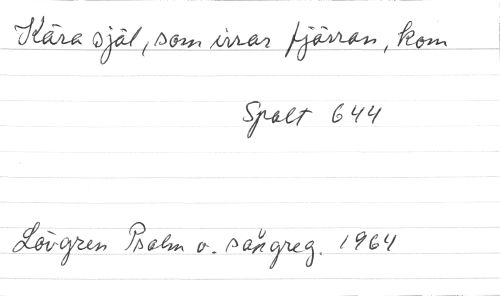 Kära själ, som irrar fjärran, kom
Spalt 644
Lövgren Psalm o. sångreg. 1964